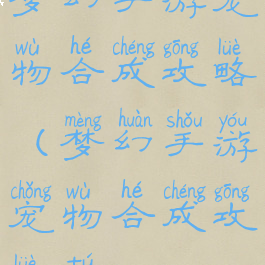 梦幻手游宠
wù hé chéng gōng lüè
物合成攻略
mèng huàn shǒu yóu
(梦幻手游
chǒng wù hé chéng gōng
宠物合成攻
lüè